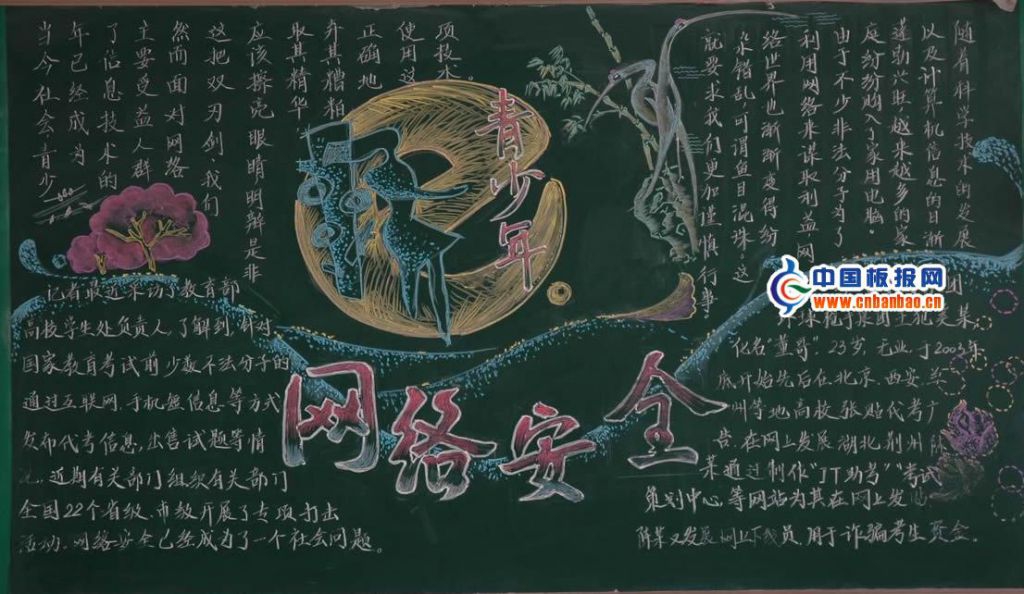 青少年
网络安全
当今社会青少
年已经成为
了信息技术的
主要受益人群
然而面对网络
这把双刃剑,我们
应该擦亮眼睛明辨是非
取其精华
弃其糟粕
正确地
使用这
项技术。
随着科学技术的发展
以及计算机信息的日渐
蓬勃兴旺,越来越多的家
庭纷纷购入了家用电脑。
由于不少非法分子为了
利用网络来谋取利益,网
络世界也渐渐变得纷
杂错乱,可谓鱼目混珠。这
就要求我们更加谨慎行事
记者最近采访了教育部
高校学生处负责人,了解到,针对
国家教育考试前少数不法分子的
通过互联网、手机短信息等方式
发布代考信息,出售试题等情
近期有关部门组织有关部门
全国22个省级、市级开展了专项打击
活动。网络安全已经成为了一个社会问题。
中国板报网
www.cnbanbao.cn
团
化名"董哥",23岁,无业,于2003年
底开始先后在北京、西安、兰
州等地高校张贴代考广
告,在网上发展湖北荆州陈
某通过制作"JT助考""考试
策划中心"等网站为其在网上发
陈某又发展网上下线员,用于诈骗考生资金。